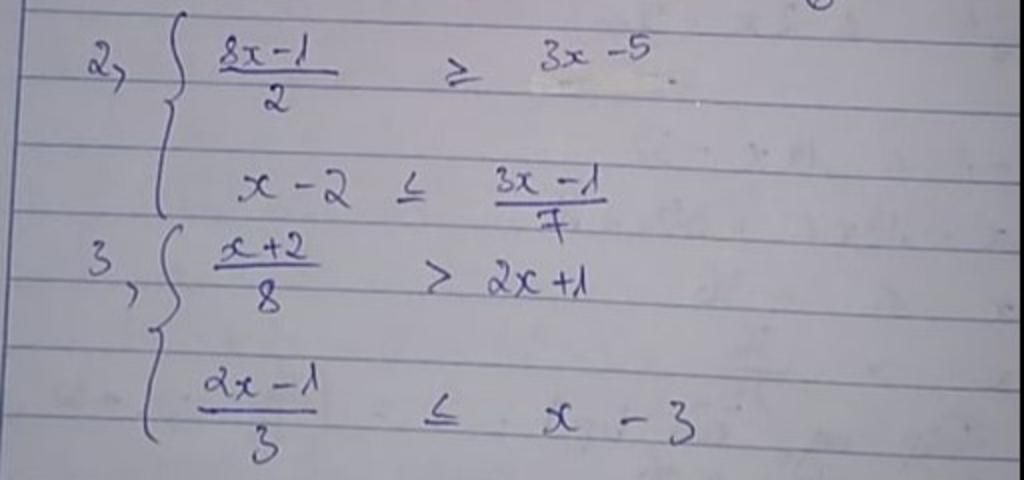 2, { (8x-1)/2 ≥ 3x-5
x-2 ≤ (3x-1)/7
3, { (x+2)/8 > 2x+1
(2x-1)/3 ≤ x-3